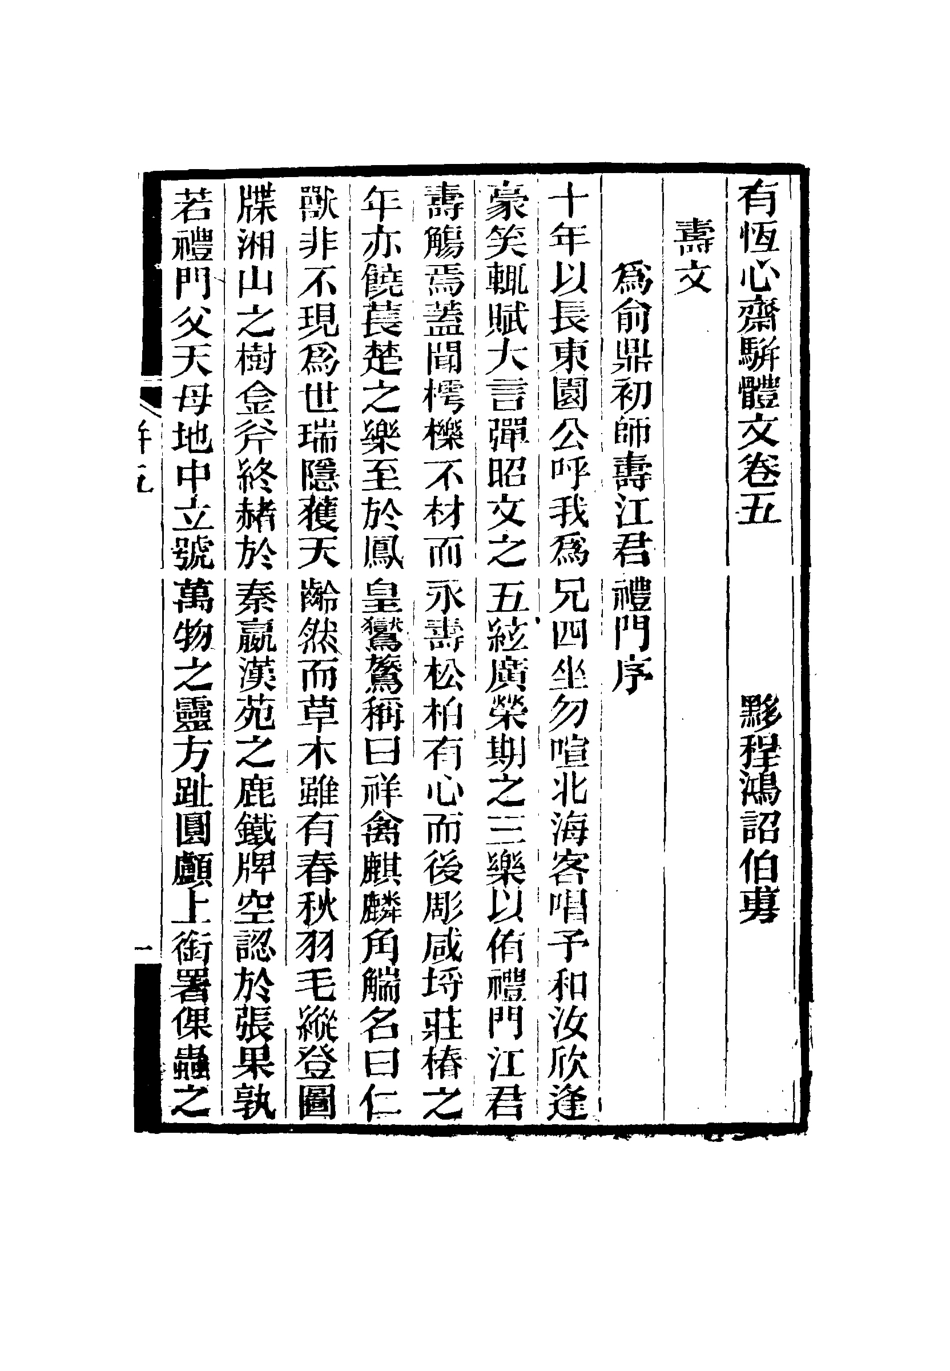 有恆心齋駢體文卷五　　　黟程鴻詔伯旉
壽文
爲俞鼎初師壽江君禮門序
十年以長東園公呼我爲兄四坐勿喧北海客唱予和汝欣逢
豪笑輒賦大言彈昭文之五絃廣榮期之三樂以侑禮門江君
壽觴焉蓋聞樗櫟不材而永壽松柏有心而後彫咸埒莊椿之
年亦饒萇楚之樂至於鳳皇鸑鷟稱曰祥禽麒麟角觿名曰仁
獸非不現爲世瑞隱獲天齡然而草木雖有春秋羽毛縱登圖
牒湘山之樹金斧終赭於秦嬴漢苑之鹿鐵牌空認於張果孰
若禮門父天母地中立號萬物之靈方趾圓顱上銜署倮蟲之
一